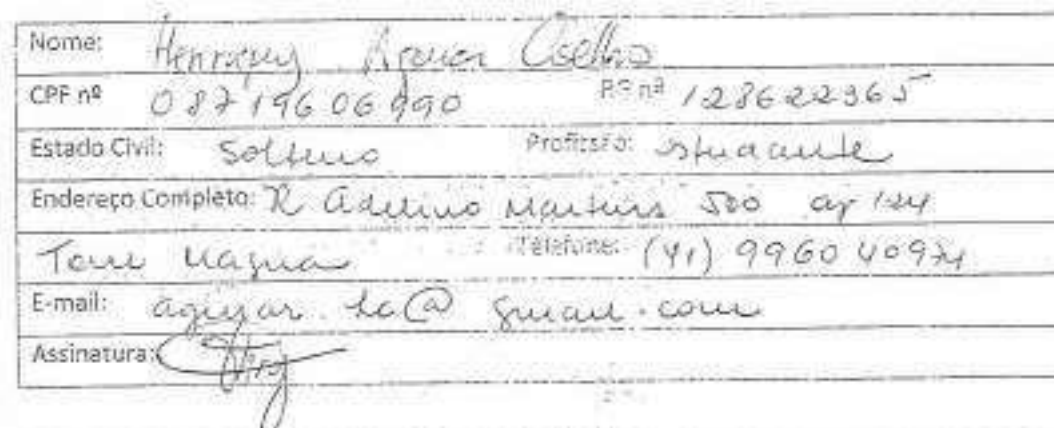 Nome: Henrique Aguiar Coelho
CPF nº 08719606990 RG nº 128622365
Estado Civil: Solteiro Profissão: estudante
Endereço Completo: R Adelino Martins 500 ap 124
Torre Magna Telefone: (41) 996040974
E-mail: aguiar.hc@gmail.com
Assinatura: